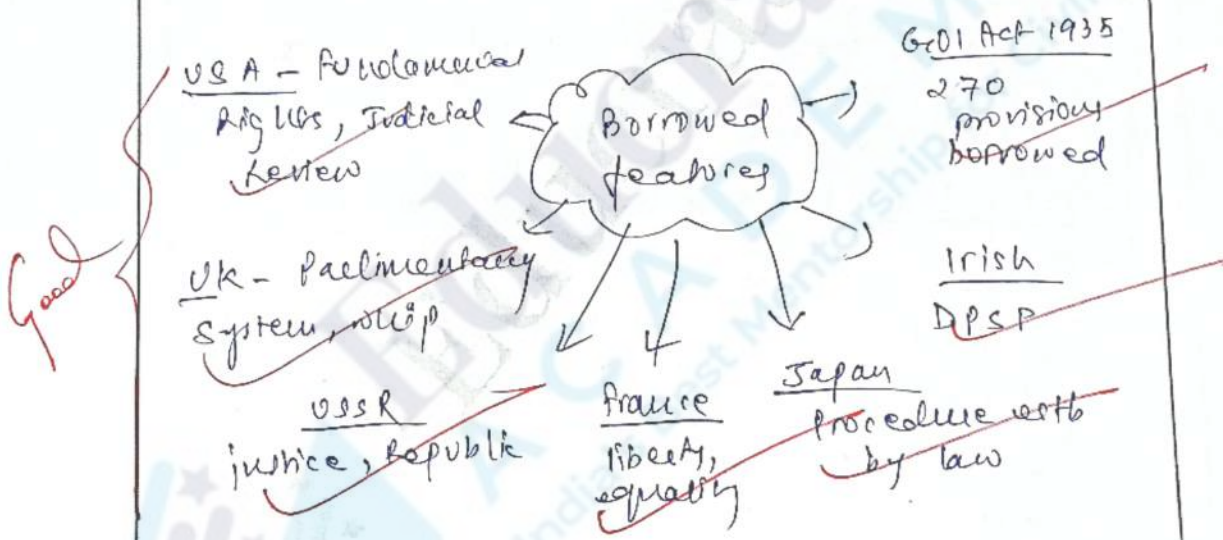 Good
USA - Fundamental
Rights, Judicial
Review
Borrowed
features
GOI Act 1935
270
provisions
borrowed
UK - Parlimentary
System, whip
Irish
DPSP
USSR
justice, Republic
France
liberty,
equality
Japan
Procedure estb
by law